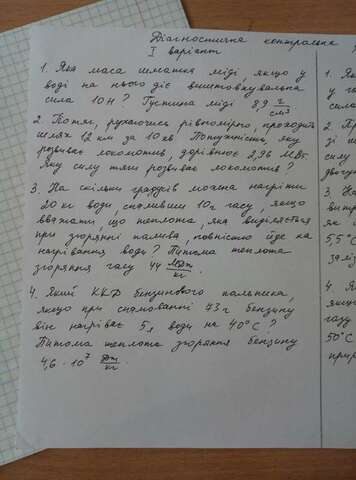 Діагностична контрольна
I варіант
1. Яка маса шматка міді, якщо у
воді на нього діє виштовхувальна
сила 10 Н? Густина міді 8,9 г/см³
2. Потяг, рухаючись рівномірно, проходить
шлях 12 км за 10 хв. Потужність, яку
розвиває локомотив, дорівнює 2,96 МВт.
Яку силу тяги розвиває локомотив?
3. На скільки градусів можна нагріти
20 кг води, спаливши 10 г газу, якщо
вважати, що теплота, яка виділяється
при згорянні палива, повністю йде на
нагрівання води? Питома теплота
згоряння газу 44 МДж/кг.
4. Який ККД бензинового пальника,
якщо при спалюванні 73 г бензину
він нагріває 5 л води на 40°С?
Питома теплота згоряння бензину
4,6 · 10⁷ Дж/кг
1.
у
сила
2.
зі
3.
як
5,5°С
4.
якщо
газу
50°С